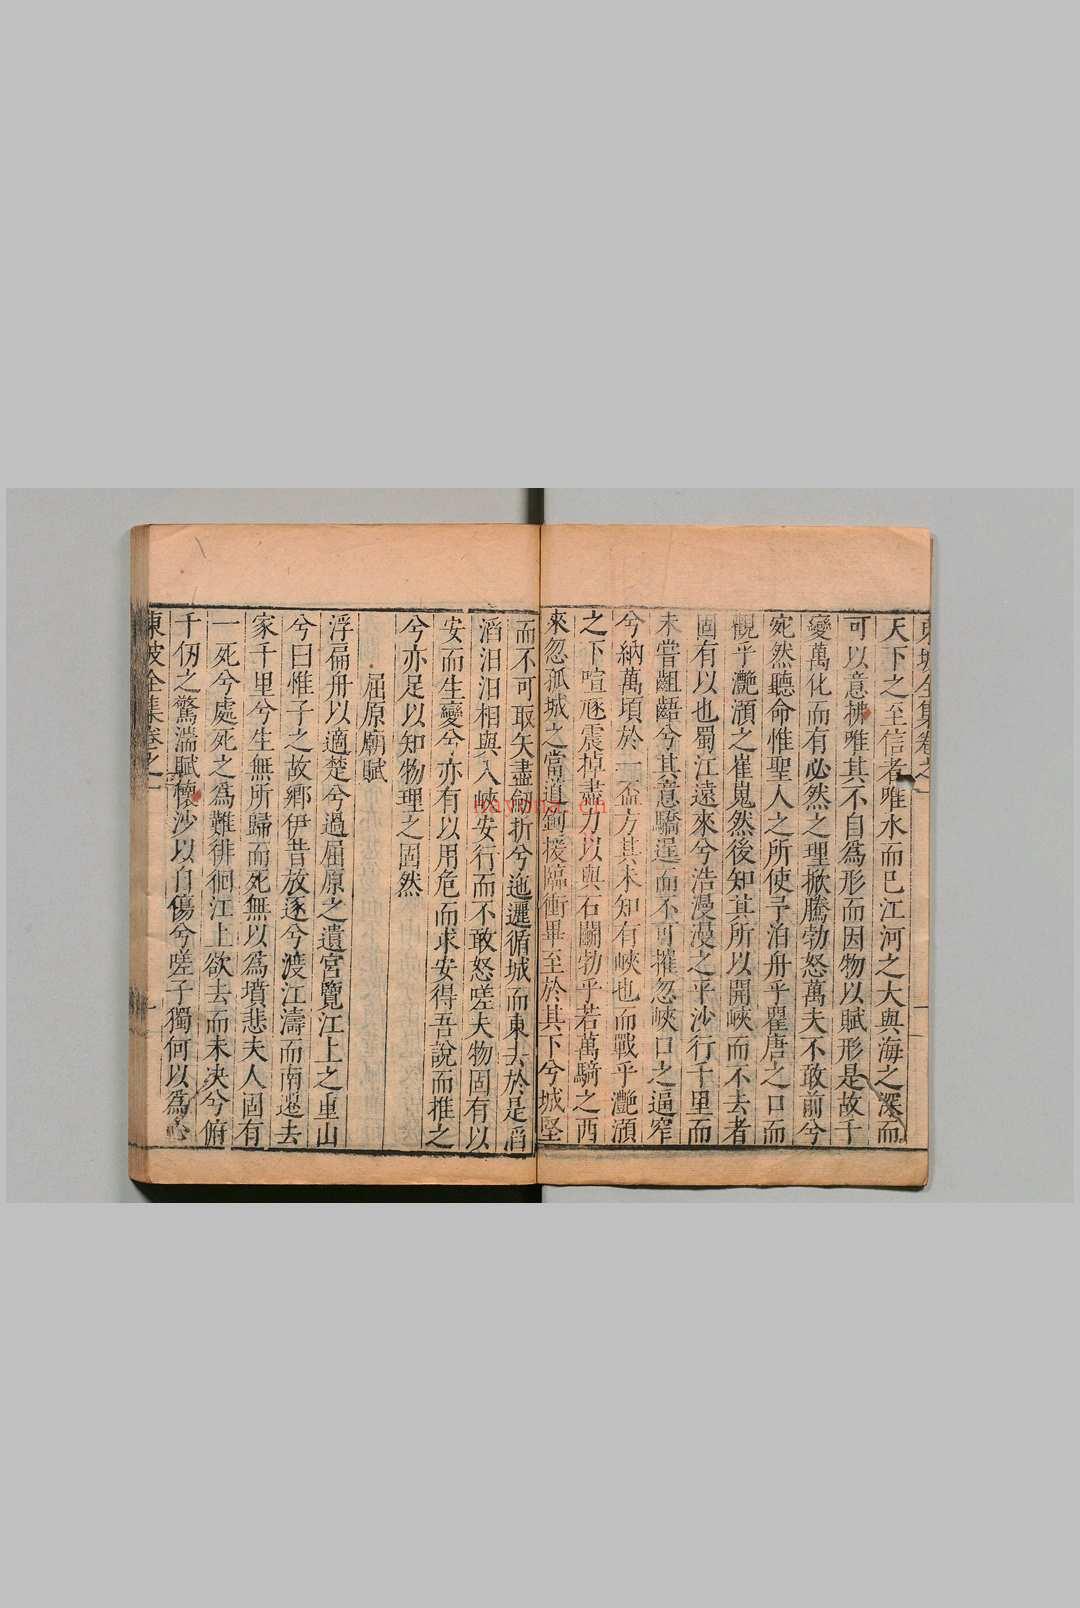 東坡全集卷之一
天下之至信者唯水而已江河之大與海之深而
可以意揣唯其不自爲形而因物以賦形是故千
變萬化而有必然之理掀騰勃怒萬夫不敢前兮
宛然聽命惟聖人之所使予泊舟乎瞿唐之口而
觀乎灔澦之崔嵬然後知其所以開峽而不去者
固有以也蜀江遠來兮浩漫漫之平沙行千里而
未嘗齟齬兮其意驕逞而不可摧忽峽口之逼窄
兮納萬頃於一盃方其未知有峽也而戰乎灔澦
之下喧豗震掉盡力以與石鬭勃乎若萬騎之西
來忽孤城之當道鉤援臨衝畢至於其下兮城堅
而不可取矢盡劒折兮迤邐循城而東去於是滔
滔汩汩相與入峽安行而不敢怒嗟夫物固有以
安而生變兮亦有以用危而求安得吾說而推之
兮亦足以知物理之固然
屈原廟賦
浮扁舟以適楚兮過屈原之遺宮覽江上之重山
兮曰惟子之故鄉伊昔放逐兮渡江濤而南遷去
家千里兮生無所歸而死無以爲墳悲夫人固有
一死兮處死之爲難徘徊江上欲去而未决兮俯
千仞之驚湍賦懷沙以自傷兮嗟子獨何以爲心
東坡全集卷之一
havena.cn